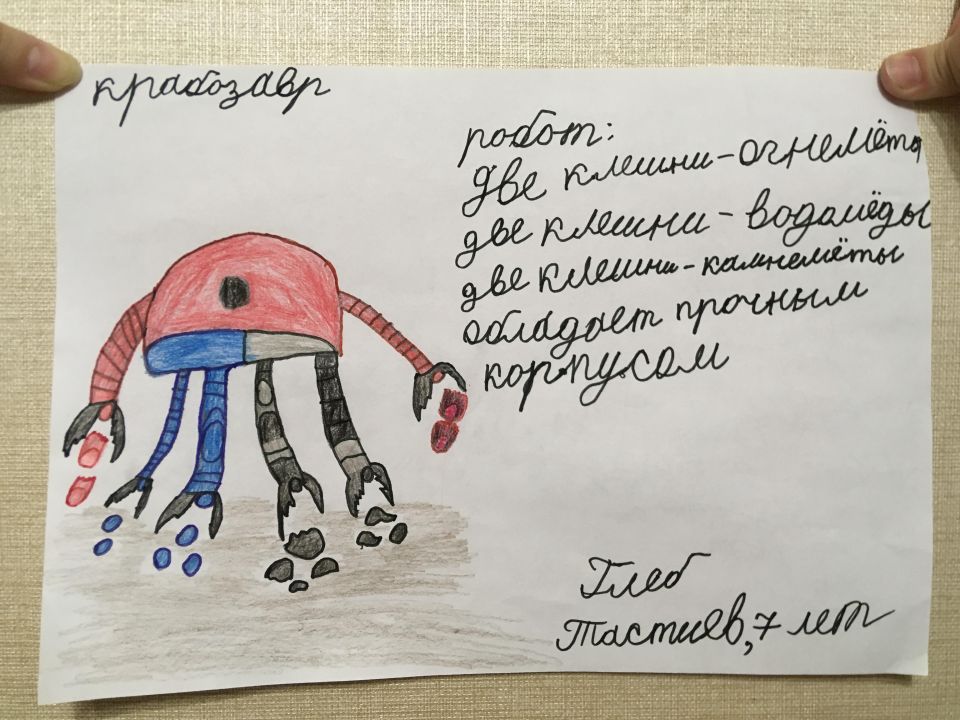 крабозавр
робот:
две клешни-огнемёты
две клешни-водамёды
две клешни-камнемёты
обладает прочным
корпусом
Глеб
Тастиев, 7 лет